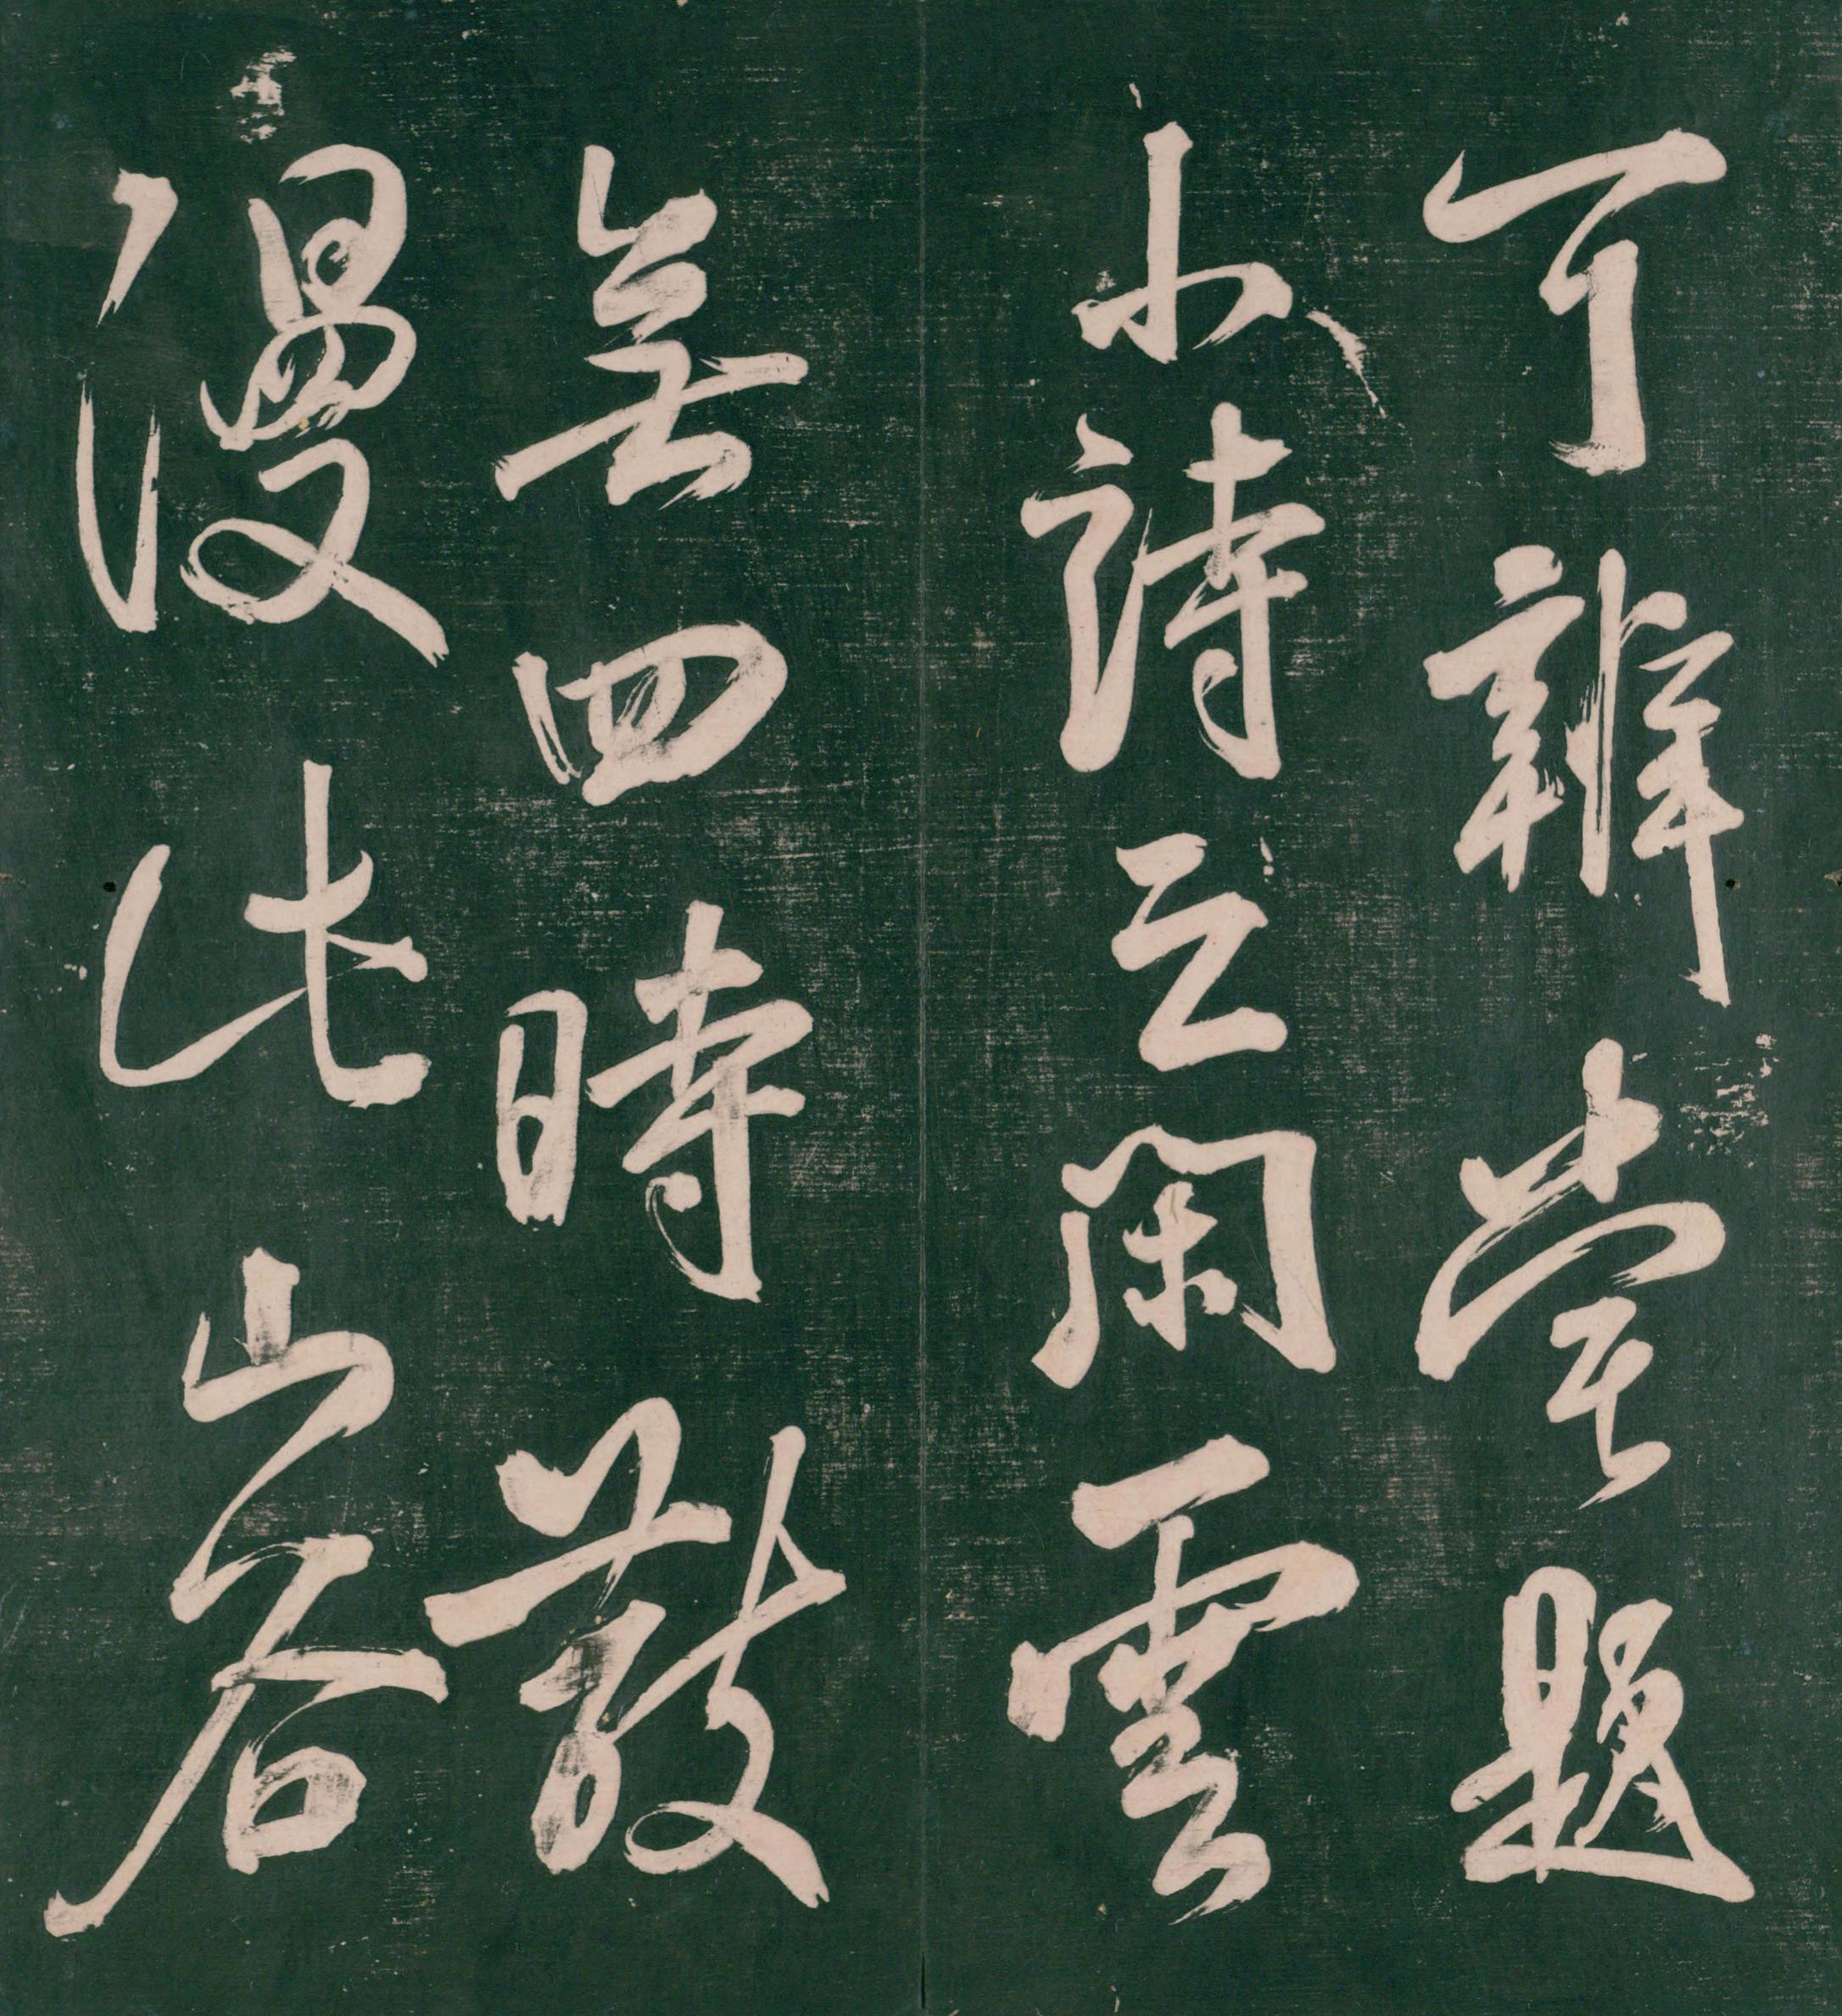 可辨嘗題
小詩云閑雲
無四時散
漫此山谷